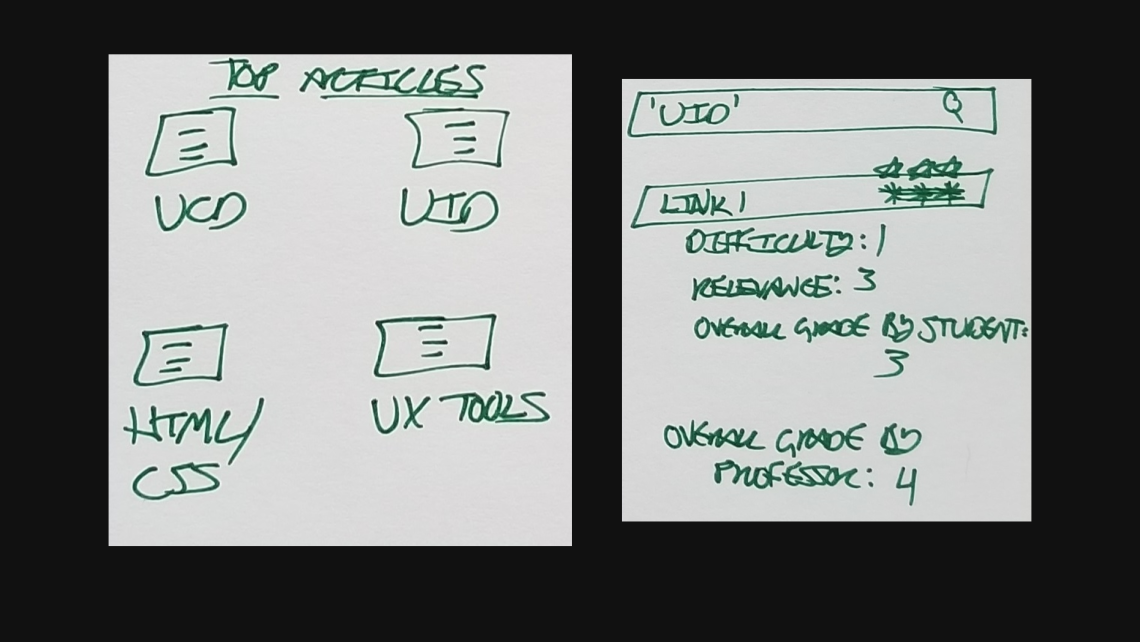 TOP ARTICLES
UCD
UID
HTML/
CSS
UX TOOLS
'UID'
LINK 1
DIFFICULTY: 1
RELEVANCE: 3
OVERALL GRADE BY STUDENT:
3
OVERALL GRADE BY
PROFESSOR: 4